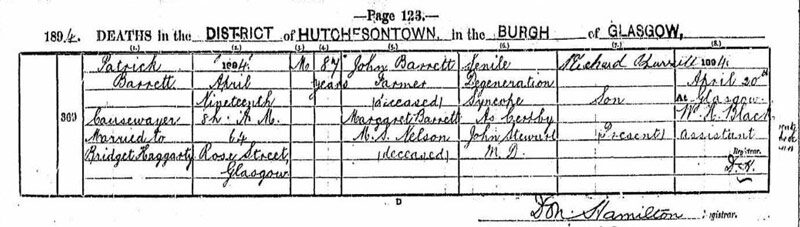 —Page 123.—
1894. DEATHS in the DISTRICT of HUTCHESONTOWN, in the BURGH of GLASGOW,
(1.) (2.) (3.) (4.) (5.) (6.) (7.) (8.)
369
Patrick
Barrett
Causewayer
Married to
Bridget Haggarty
1894
April
Nineteenth
8h. A M.
64
Rose Street,
Glasgow
M
87
years
John Barrett
Farmer
(deceased)
Margaret Barrett
M. S. Nelson
(deceased)
Senile
Degeneration
Syncope
As Cert by
John Stewart
M. D.
Richard
Son
(Present)
1894
April 20th
At Glasgow
Wm. H. Black
Assistant
Registrar.
D. H.
D
Hamilton Registrar.